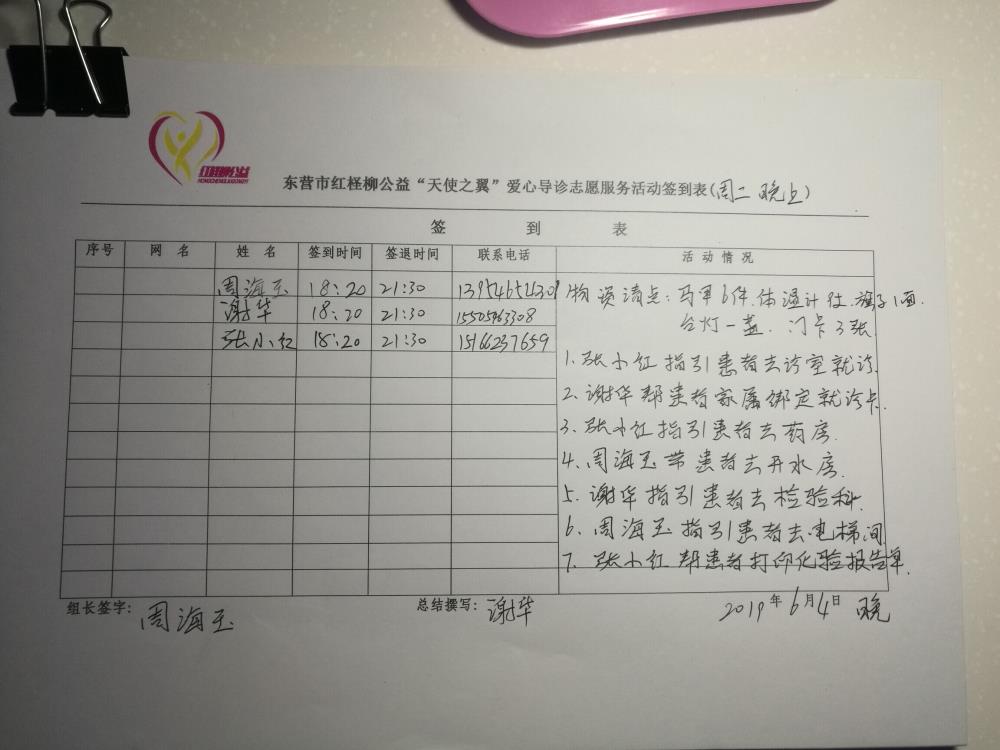 红柽柳公益
HONGCHENGLIUGONGYI
东营市红柽柳公益“天使之翼”爱心导诊志愿服务活动签到表(周二 晚上)
签 到 表
序号 网 名 姓 名 签到时间 签退时间 联系电话 活 动 情 况
周海玉 18:20 21:30
谢华 18:20 21:30
张小红 18:20 21:30 15166237659
物资清点:马甲6件.体温计1仗.旗子1面.
台灯一盏. 门卡3张
1.张小红指引患者去诊室就诊.
2.谢华帮患者家属绑定就诊卡.
3.张小红指引患者去药房.
4.周海玉带患者去开水房.
5.谢华指引患者去检验科.
6.周海玉指引患者去电梯间.
7.张小红帮患者打印化验报告单.
组长签字: 周海玉 总结撰写: 谢华 2019年6月4日 晚